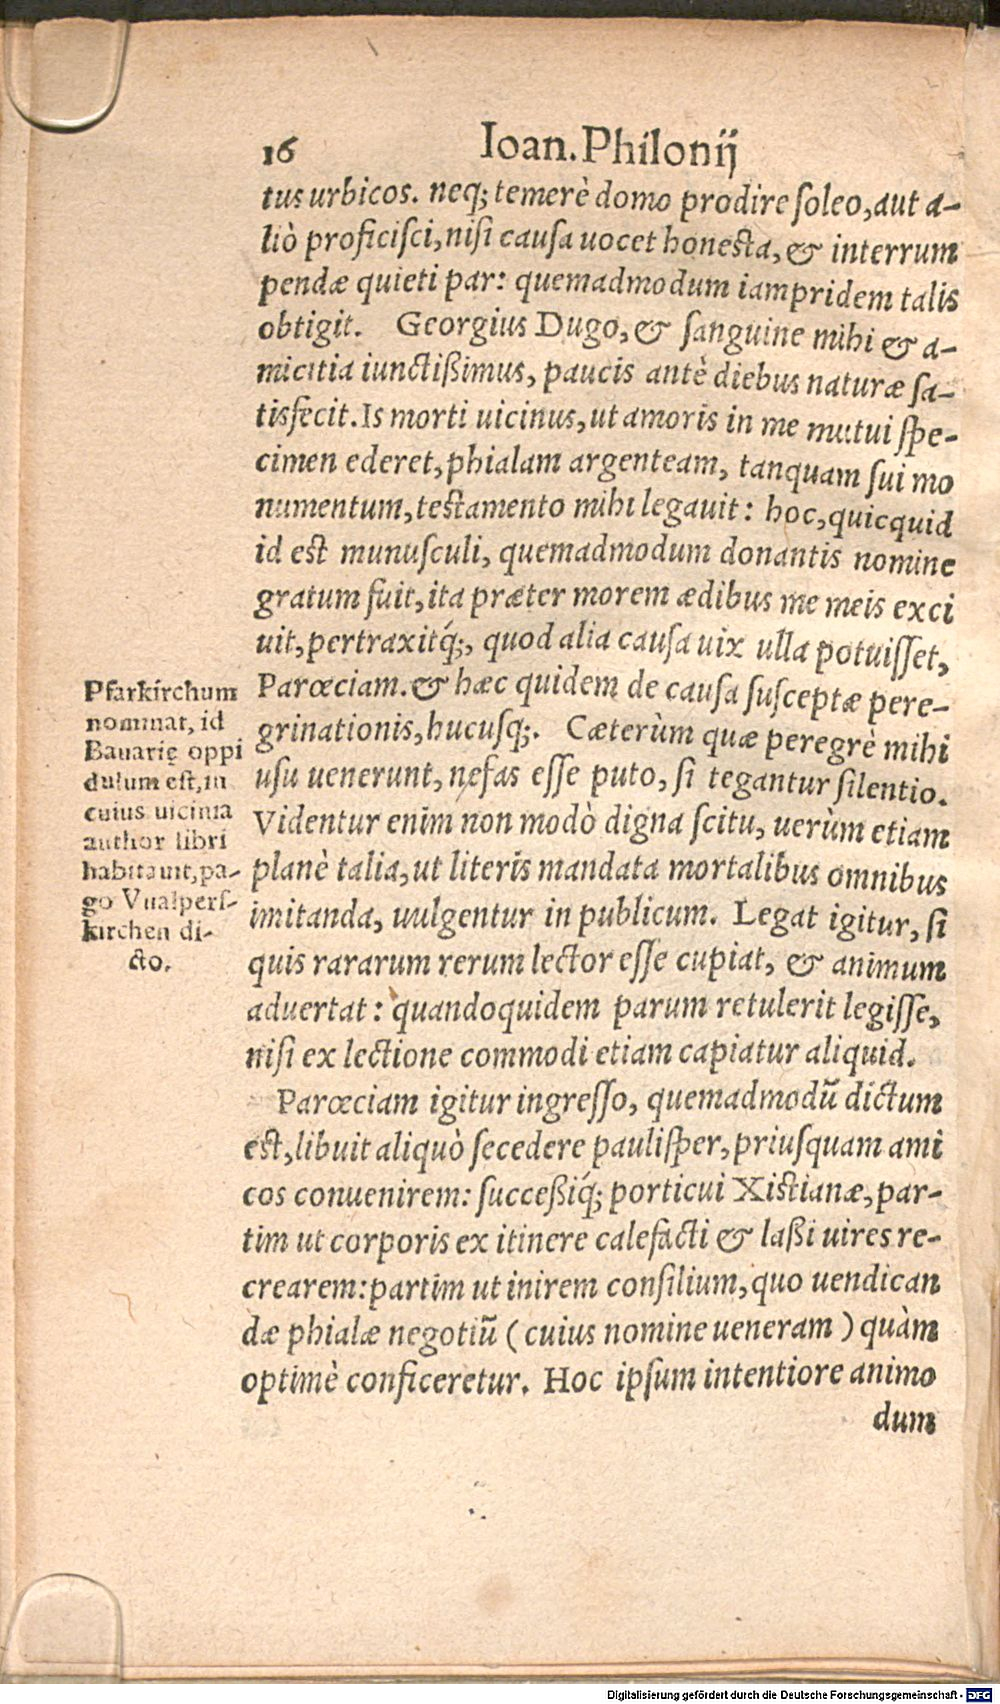 16 Ioan. Philonij
tus urbicos. neq; temerè domo prodire soleo, aut a-
liò proficisci, nisi causa uocet honesta, & interrum
pendæ quieti par: quemadmodum iampridem talis
obtigit. Georgius Dugo, & sanguine mihi & a-
micitia iunctißimus, paucis antè diebus naturæ sa-
tisfecit. Is morti uicinus, ut amoris in me mutui spe-
cimen ederet, phialam argenteam, tanquam sui mo
numentum, testamento mihi legauit: hoc, quicquid
id est munusculi, quemadmodum donantis nomine
gratum fuit, ita præter morem ædibus me meis exci
uit, pertraxitq́;, quod alia causa uix ulla potuisset,
Parœciam. & hæc quidem de causa susceptæ pere-
grinationis, hucusq;. Cæterùm quæ peregrè mihi
usu uenerunt, nefas esse puto, si tegantur silentio.
Videntur enim non modò digna scitu, uerùm etiam
planè talia, ut literis mandata mortalibus omnibus
imitanda, uulgentur in publicum. Legat igitur, si
quis rararum rerum lector esse cupiat, & animum
aduertat: quandoquidem parum retulerit legisse,
nisi ex lectione commodi etiam capiatur aliquid.
Parœciam igitur ingresso, quemadmodū dictum
est, libuit aliquò secedere paulisper, priusquam ami
cos conuenirem: succeßiq́; porticui Xistianæ, par-
tim ut corporis ex itinere calefacti & laßi uires re-
crearem: partim ut inirem consilium, quo uendican
dæ phialæ negotiū (cuius nomine ueneram) quàm
optimè conficeretur. Hoc ipsum intentiore animo
dum
Pfarkirchum
nominat, id
Bauarię oppi
dulum est, in
cuius uicinia
author libri
habitauit, pa-
go Vualpers-
kirchen di-
cto.
Digitalisierung gefördert durch die Deutsche Forschungsgemeinschaft - DFG